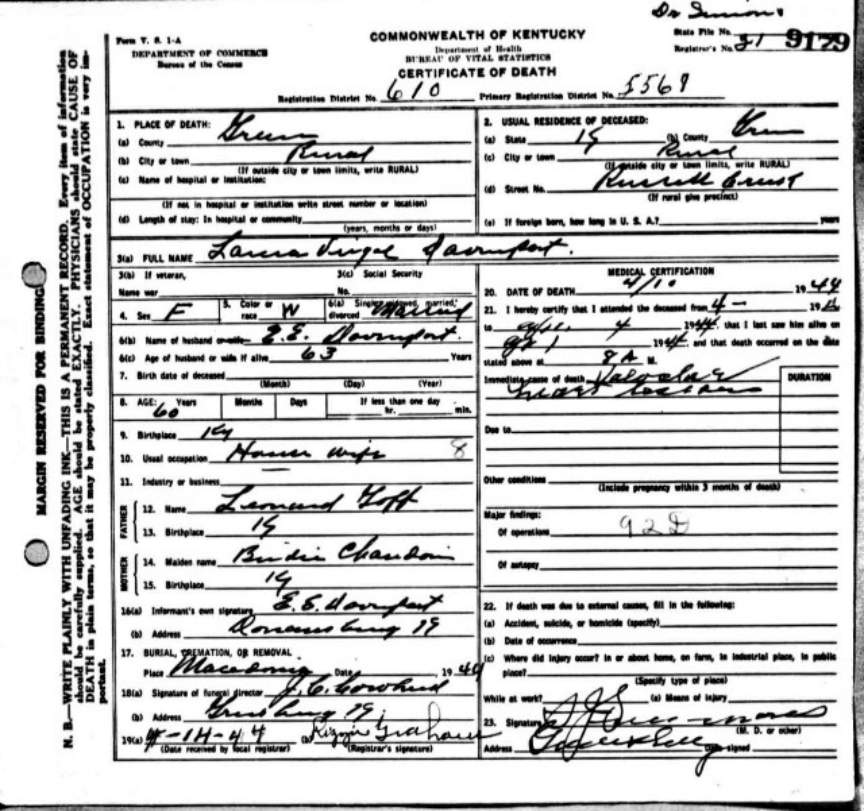 Form V. S. 1-A
DEPARTMENT OF COMMERCE
Bureau of the Census
COMMONWEALTH OF KENTUCKY
Department of Health
BUREAU OF VITAL STATISTICS
CERTIFICATE OF DEATH
State File No. 9179
Registrar's No. 21
Registration District No. 610 Primary Registration District No. 5569
MARGIN RESERVED FOR BINDING
N. B.—WRITE PLAINLY WITH UNFADING INK—THIS IS A PERMANENT RECORD. Every item of information
should be carefully supplied. AGE should be stated EXACTLY. PHYSICIANS should state CAUSE OF
DEATH in plain terms, so that it may be properly classified. Exact statement of OCCUPATION is very im-
portant.
1. PLACE OF DEATH:
(a) County Green
(b) City or town Rural
(If outside city or town limits, write RURAL)
(c) Name of hospital or institution:
(If not in hospital or institution write street number or location)
(d) Length of stay: In hospital or community
(years, months or days)
2. USUAL RESIDENCE OF DECEASED:
(a) State Ky (b) County Green
(c) City or town Rural
(If outside city or town limits, write RURAL)
(d) Street No. Russell
(If rural give precinct)
(e) If foreign born, how long in U. S. A.? years
3(a) FULL NAME Laura Davenport.
3(b) If veteran,
Name war
3(c) Social Security
No.
4. Sex F
5. Color or
race W
6(a) Single, widowed, married,
divorced Married
6(b) Name of husband or wife E. E. Davenport.
6(c) Age of husband or wife if alive 63 Years
7. Birth date of deceased
(Month) (Day) (Year)
8. AGE: Years Months Days If less than one day
60 hr. min.
9. Birthplace Ky
10. Usual occupation House wife 8
11. Industry or business
FATHER
12. Name Leonard Goff
13. Birthplace Ky
MOTHER
14. Maiden name Birdie Chaudoin
15. Birthplace Ky
16(a) Informant's own signature E. E. Davenport
(b) Address Donansburg Ky
17. BURIAL, CREMATION, OR REMOVAL
Place Macedonia Date 1944
18(a) Signature of funeral director J. C. Cowherd
(b) Address Greensburg Ky
19(a) 4-14-44 (b) Graham
(Date received by local registrar) (Registrar's signature)
MEDICAL CERTIFICATION
20. DATE OF DEATH 4/10 1944
21. I hereby certify that I attended the deceased from 4 - 19
to 4 1944, that I last saw him alive on
1944, and that death occurred on the date
stated above at 8 A M.
Immediate cause of death Valvular
heart
DURATION
Due to
Other conditions
(Include pregnancy within 3 months of death)
Major findings:
Of operations 92D
Of autopsy
22. If death was due to external causes, fill in the following:
(a) Accident, suicide, or homicide (specify)
(b) Date of occurrence
(c) Where did injury occur? In or about home, on farm, in industrial place, in public
place?
(Specify type of place)
While at work? (e) Means of injury
23. Signature
(M. D. or other)
Address Date signed